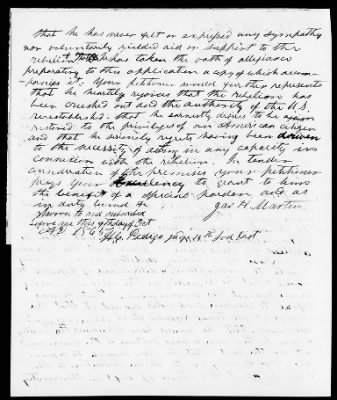 that he has never felt or expressed any sympathy
nor voluntarily yielded aid or support to the
rebellion & that he has taken the oath of allegiance
preparatory to this application a copy of which accom-
panies it. Your petitioner would further represent
that he heartily rejoices that the rebellion has
been crushed out and the authority of the U.S.
reestablished. that he earnestly desires to be again
restored to the privileges of an American citizen
and that he sincerely regrets having been driven
to the necessity of acting in any capacity in
connexion with the rebellion. In tender
consideration of the premises your petitioner
prays your Excellency to grant to him
the benefit of a special pardon and as
in duty bound &c
Jas H. Martin
Sworn to and subscribed
before me this 9th day of Oct
AD 1865